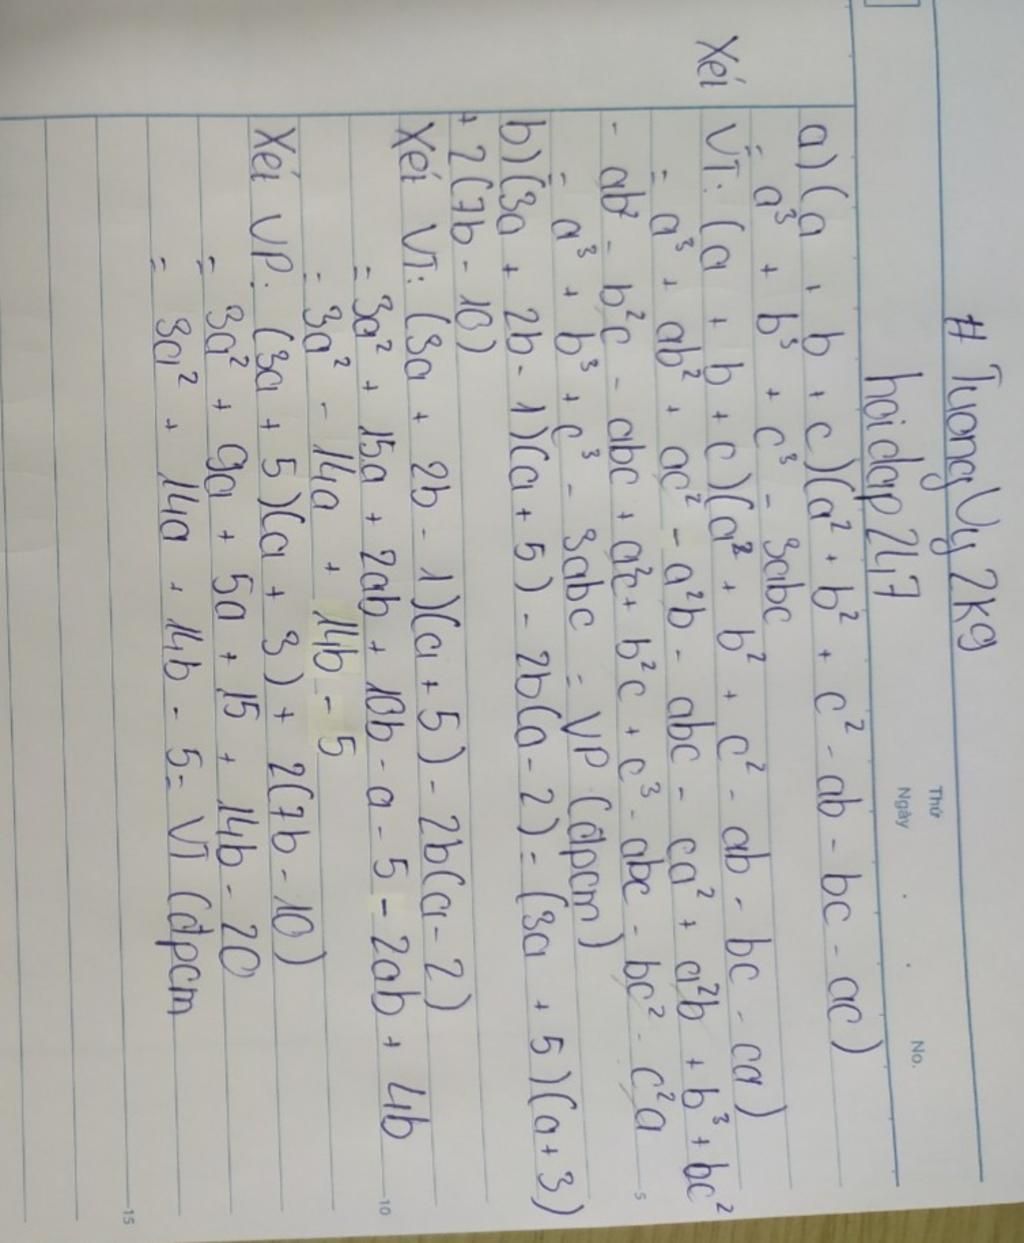 # TuongVy2kg
hoidap247
Thứ
Ngày
No.
a) (a + b + c)(a² + b² + c² - ab - bc - ac)
= a³ + b³ + c³ - 3abc
Xét VT: (a + b + c)(a² + b² + c² - ab - bc - ca)
= a³ + ab² + ac² - a²b - abc - ca² + a²b + b³ + bc²
- ab² - b²c - abc + a²c + b²c + c³ - abc - bc² - c²a
= a³ + b³ + c³ - 3abc = VP (đpcm)
b) (3a + 2b - 1)(a + 5) - 2b(a - 2) = (3a + 5)(a + 3)
+ 2(7b - 10)
Xét VT: (3a + 2b - 1)(a + 5) - 2b(a - 2)
= 3a² + 15a + 2ab + 10b - a - 5 - 2ab + 4b
= 3a² - 14a + 14b - 5
Xét VP: (3a + 5)(a + 3) + 2(7b - 10)
= 3a² + 9a + 5a + 15 + 14b - 20
= 3a² + 14a + 14b - 5 = VT (đpcm
5
10
15